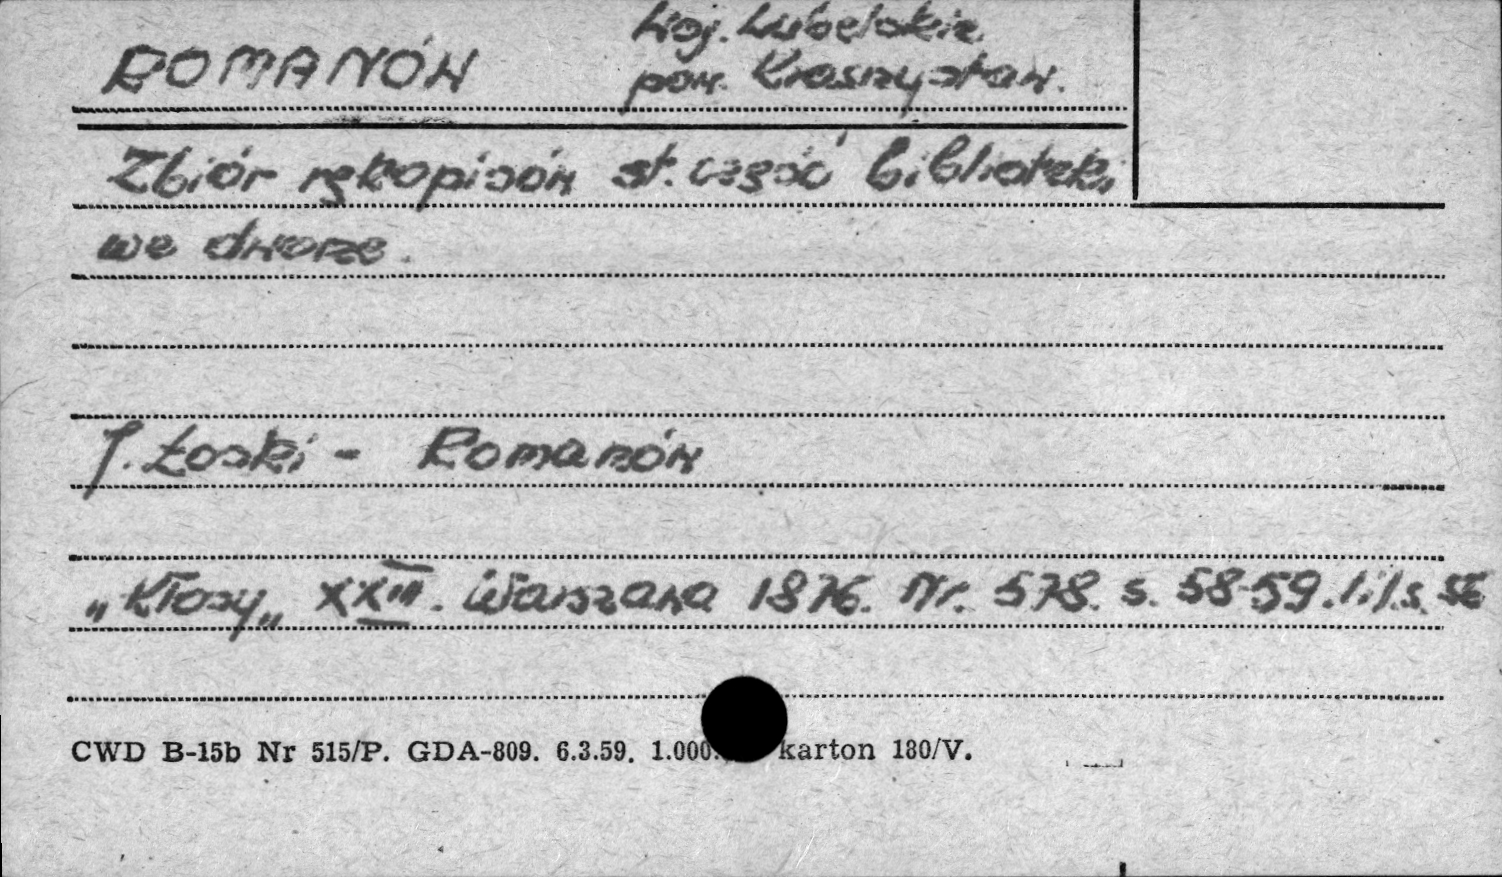 Woj. Lubelskie
ROMANÓW pow. Krasnystaw.
Zbiór rękopisów st. część biblioteki
we dworze.
J. Łoski - Romanów
„Kłosy„ XXIII. Warszawa 1876. Nr. 578. s. 58-59. il. s. 56
CWD B-15b Nr 515/P. GDA-809. 6.3.59. 1.000. karton 180/V.